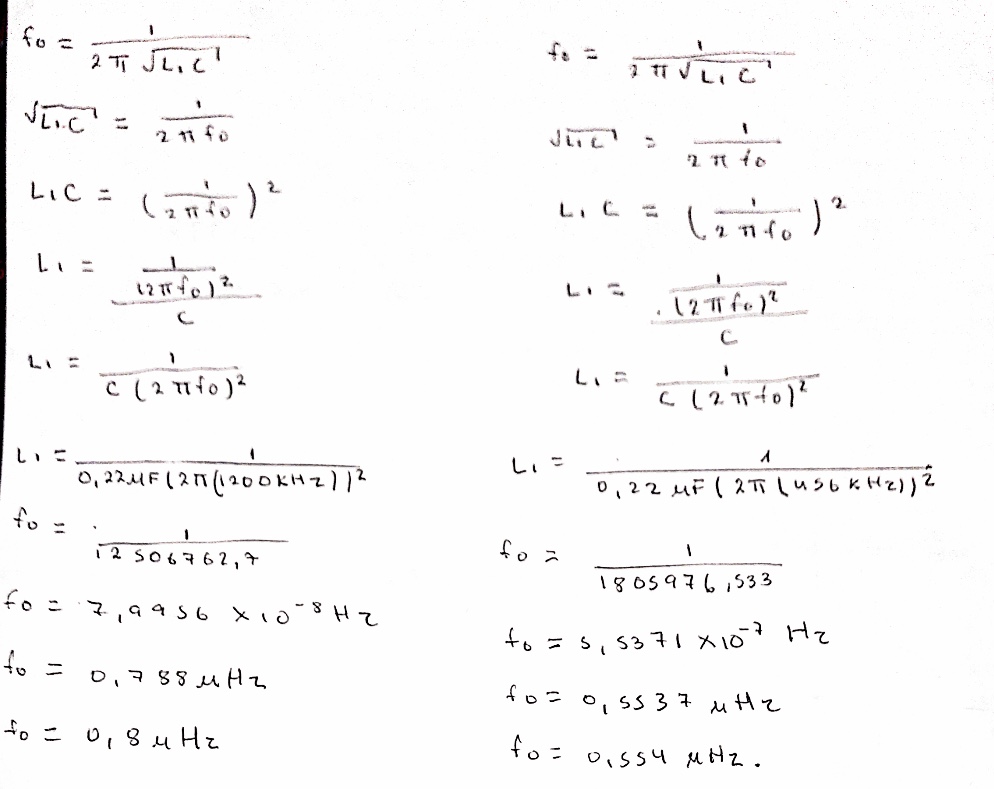 f₀ = 1 / (2π√(L₁C))
√(L₁.C) = 1 / (2πf₀)
L₁C = (1 / (2πf₀))²
L₁ = (1 / (2πf₀)²) / C
L₁ = 1 / (C (2πf₀)²)
L₁ = 1 / (0,22μF (2π(1200KHz))²)
f₀ = 1 / 12506762,7
f₀ = 7,9956 × 10⁻⁸ Hz
f₀ = 0,788 μHz
f₀ = 0,8 μHz
f₀ = 1 / (2π√(L₁C))
√(L₁C) = 1 / (2πf₀)
L₁C = (1 / (2πf₀))²
L₁ = (1 / (2πf₀)²) / C
L₁ = 1 / (C (2πf₀)²)
L₁ = 1 / (0,22 μF (2π (456 kHz))²)
f₀ = 1 / 1805976,533
f₀ = 5,5371 × 10⁻⁷ Hz
f₀ = 0,5537 μHz
f₀ = 0,554 μHz.